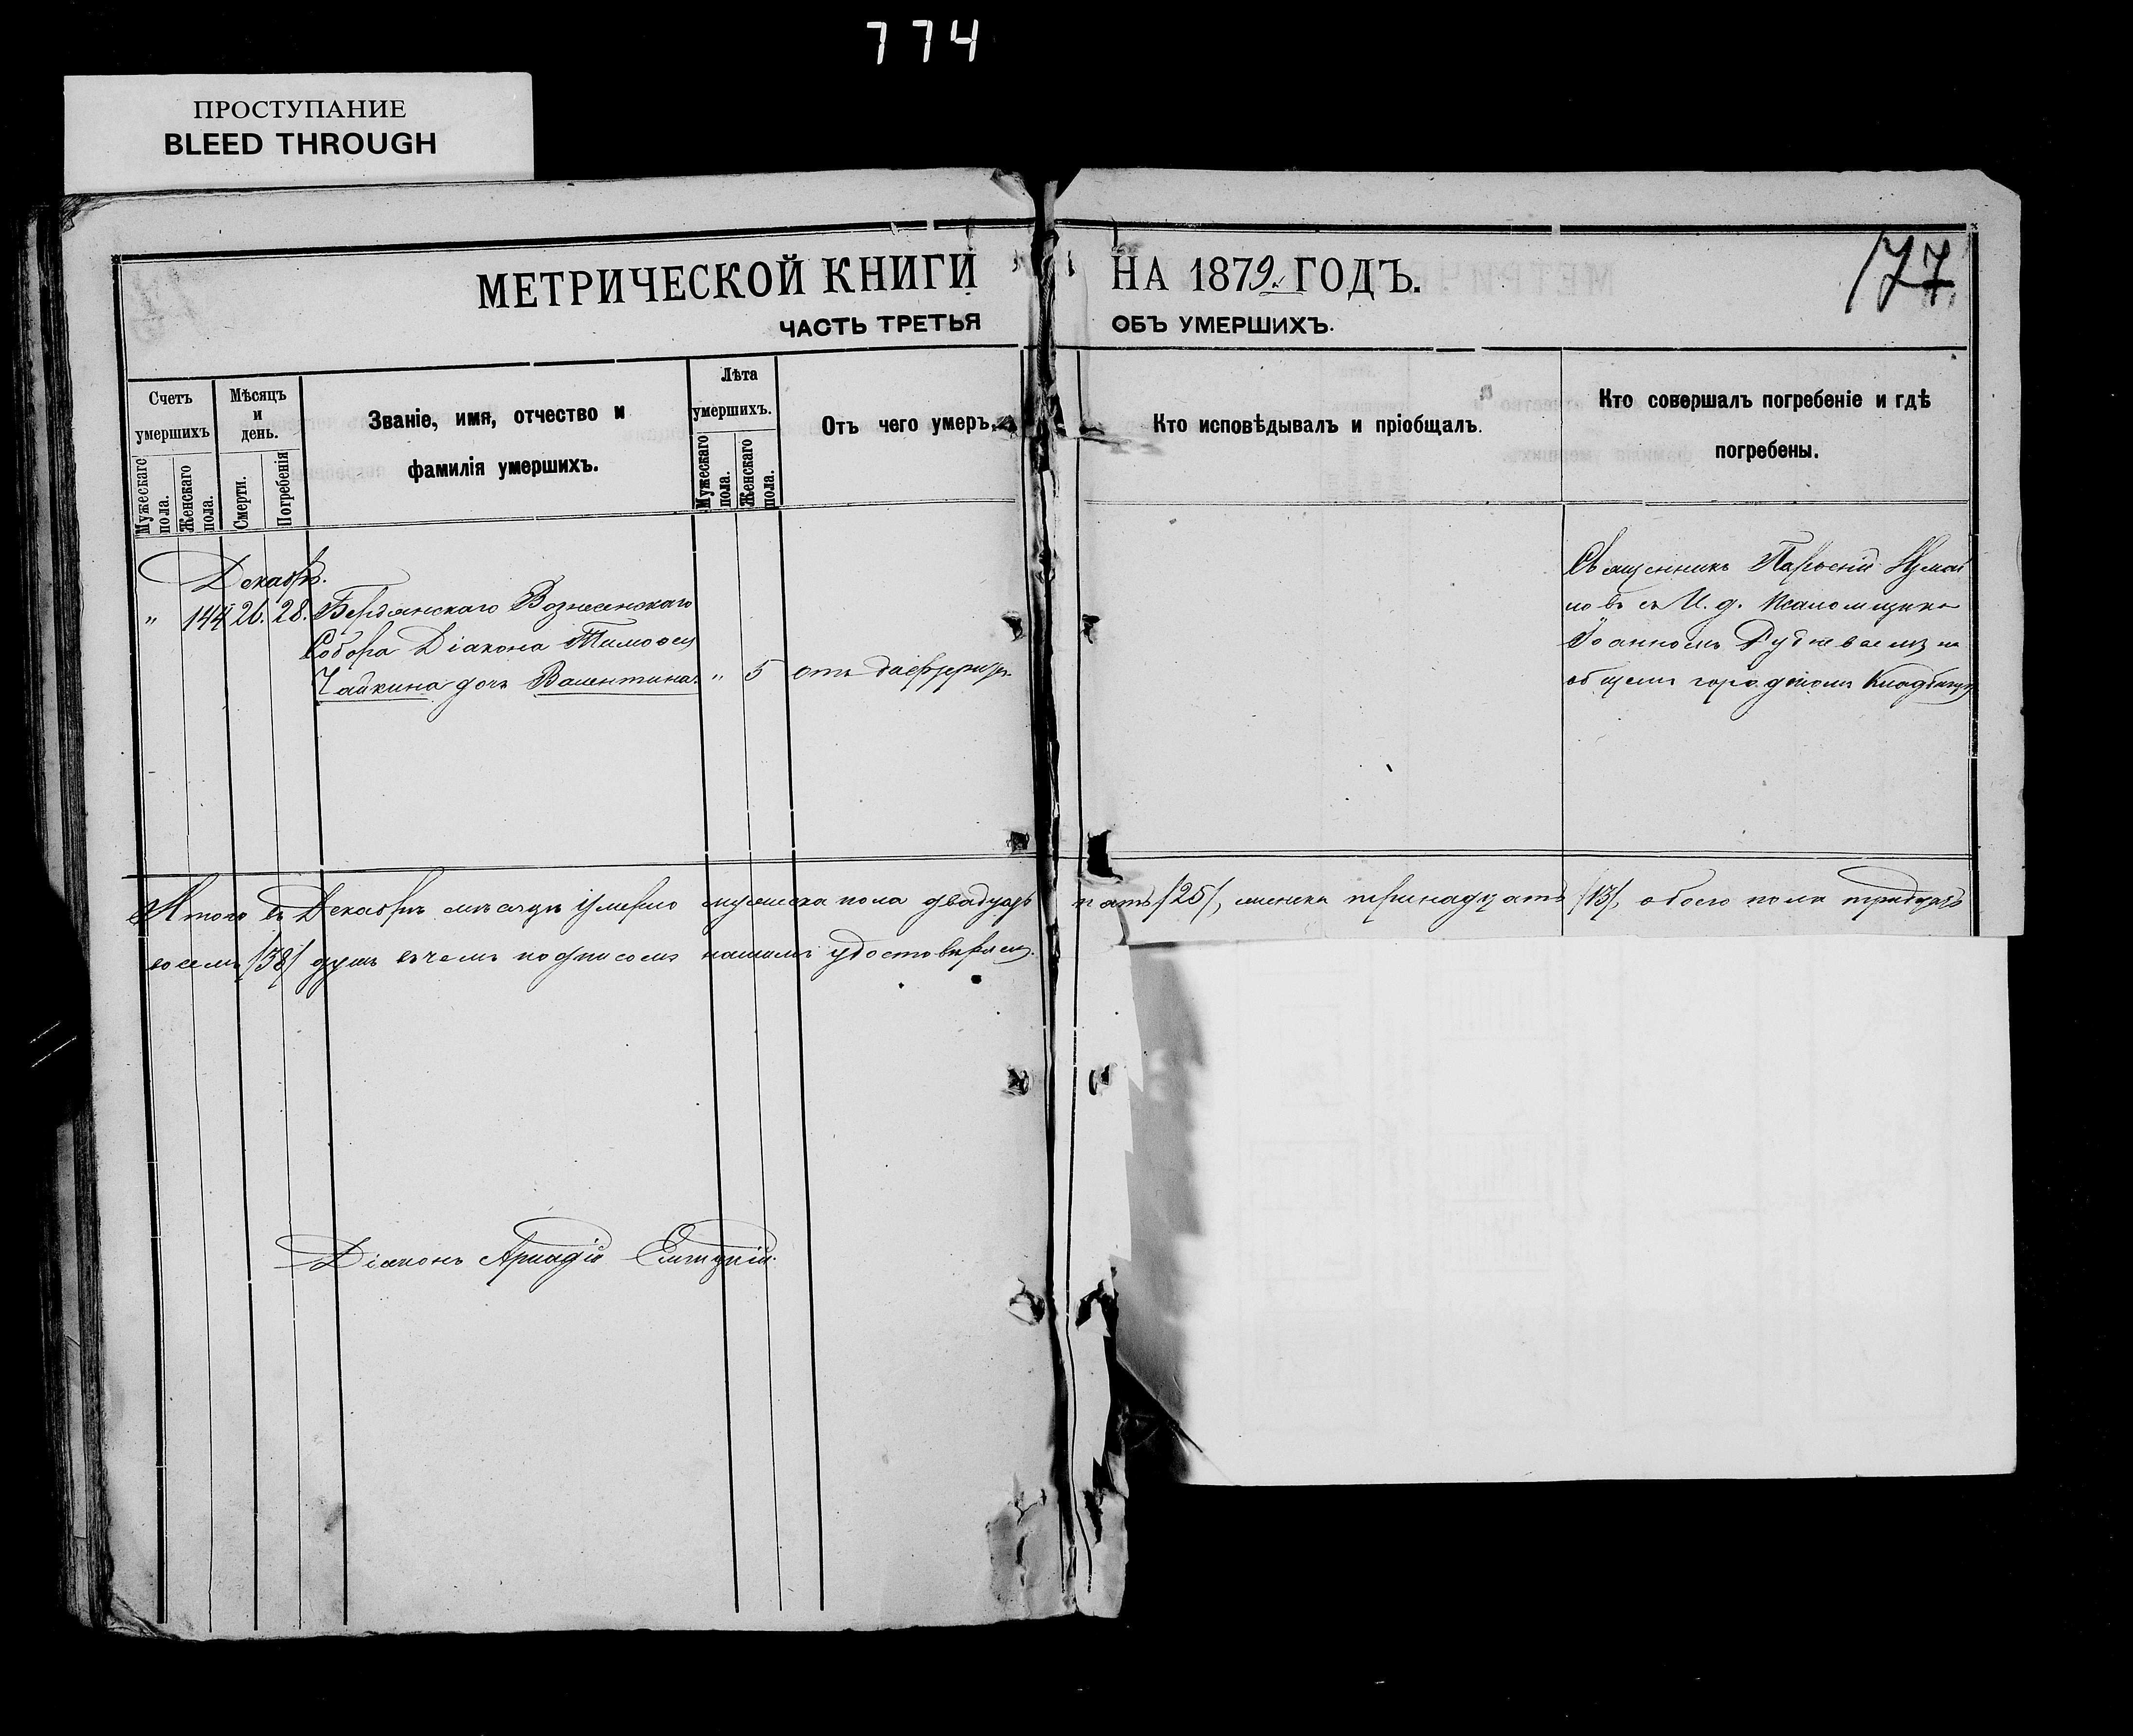 774
ПРОСТУПАНИЕ
BLEED THROUGH
МЕТРИЧЕСКОЙ КНИГИ НА 1879 ГОДЪ.
177
ЧАСТЬ ТРЕТЬЯ ОБЪ УМЕРШИХЪ.
Счетъ умершихъ
Мужескаго пола.
Женскаго пола.
Мѣсяцъ и день.
Смерти.
Погребенія
Званіе, имя, отчество и фамилія умершихъ.
Лѣта умершихъ.
Мужескаго пола.
Женскаго пола.
Отъ чего умеръ.
Кто исповѣдывалъ и пріобщалъ.
Кто совершалъ погребеніе и гдѣ погребены.
Декабрь.
" 144 26. 28. Бердянскаго Вознесенскаго
Собора Діакона Тимоѳея
Чайкина дочь Валентина. " 5 отъ
Священникъ Парѳеній Измаи
ловъ съ И. д. Псаломщика
Іоанномъ на
общемъ городскомъ Кладбищѣ
Итого въ Декабрѣ мѣсяцѣ умерло мужеска пола двадцать пять /25/, женска тринадцать /13/, обоего пола тридцать
восемь /38/ душъ въ чемъ подписомъ нашимъ удостовѣряемъ.
Діаконъ Аркадій